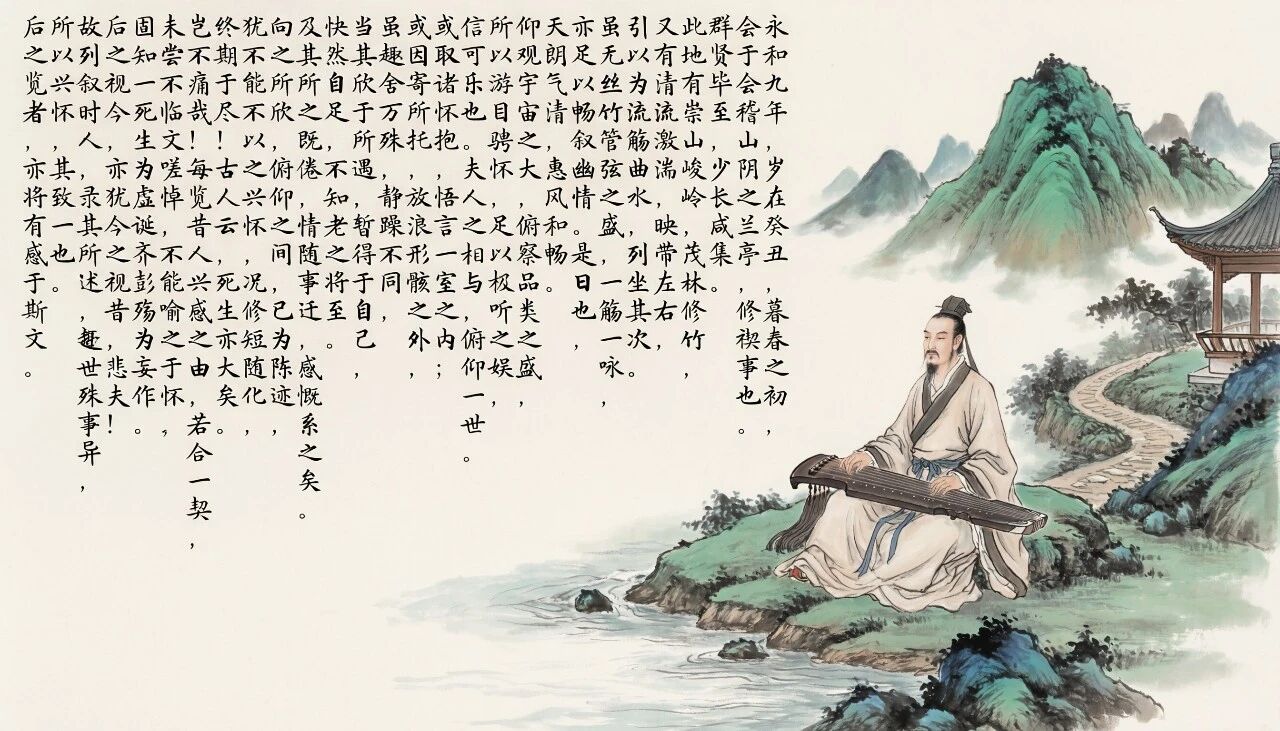 永和九年，岁在癸丑，暮春之初，
会于会稽山阴之兰亭，修禊事也。
群贤毕至，少长咸集。
此地有崇山，峻岭，茂林修竹，
又有清流激湍，映带左右，
引以为流觞曲水，列坐其次。
虽无丝竹管弦之盛，一觞一咏，
亦足以畅叙幽情。是日也，
天朗气清，惠风和畅。
仰观宇宙之大，俯察品类之盛，
所以游目骋怀，足以极听之娱，
信可乐也。夫人之相与，俯仰一世。
或取诸怀抱，悟言一室之内；
或因寄所托，放浪形骸之外，
虽趣舍万殊，静躁不同，
当其欣于所遇，暂得于自己，
快然自足，不知老之将至。
及其所之既倦，情随事迁，感慨系之矣。
向之所欣，俯仰之间，已为陈迹，
犹不能不以之兴怀，况修短随化，
终期于尽！古人云，死生亦大矣。
岂不痛哉！每览昔人兴感之由，若合一契，
未尝不临文嗟悼，不能喻之于怀，
固知一死生为虚诞，齐彭殇为妄作。
后之视今，亦犹今之视昔，悲夫！
故列叙时人，录其所述，趣世殊事异，
所以兴怀，其致一也。
后之览者，亦将有感于斯文。